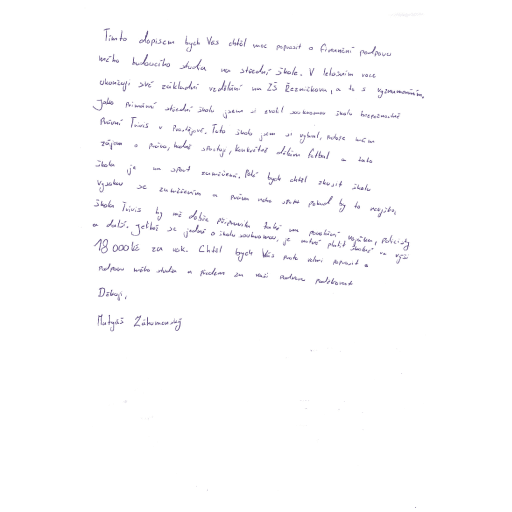 Tímto dopisem bych Vás chtěl moc poprosit o finanční podporu
mého budoucího studia na střední škole. V letošním roce
ukončuji své základní vzdělání na ZŠ Řezníčkova, a to s vyznamenáním.
Jako primární střední školu jsem si zvolil soukromou školu bezpečnostně
Právní Trivis v Prostějově. Tuto školu jsem si vybral, protože mám
zájem o právo, hodně sportuji, konkrétně dělám fotbal a tato
škola je na sport zaměřená. Poté bych chtěl zkusit školu
vysokou se zaměřením na právo nebo sport pokud by to nevyšlo,
škola Trivis by mě dobře připravila také na povolání vojáka, policisty
a další. Jelikož se jedná o školu soukromou, je nutné platit školné ve výši
18 000 Kč za rok. Chtěl bych Vás proto velmi poprosit o
podporu mého studia a předem za vaši podporu poděkovat
Děkuji,
Matyáš